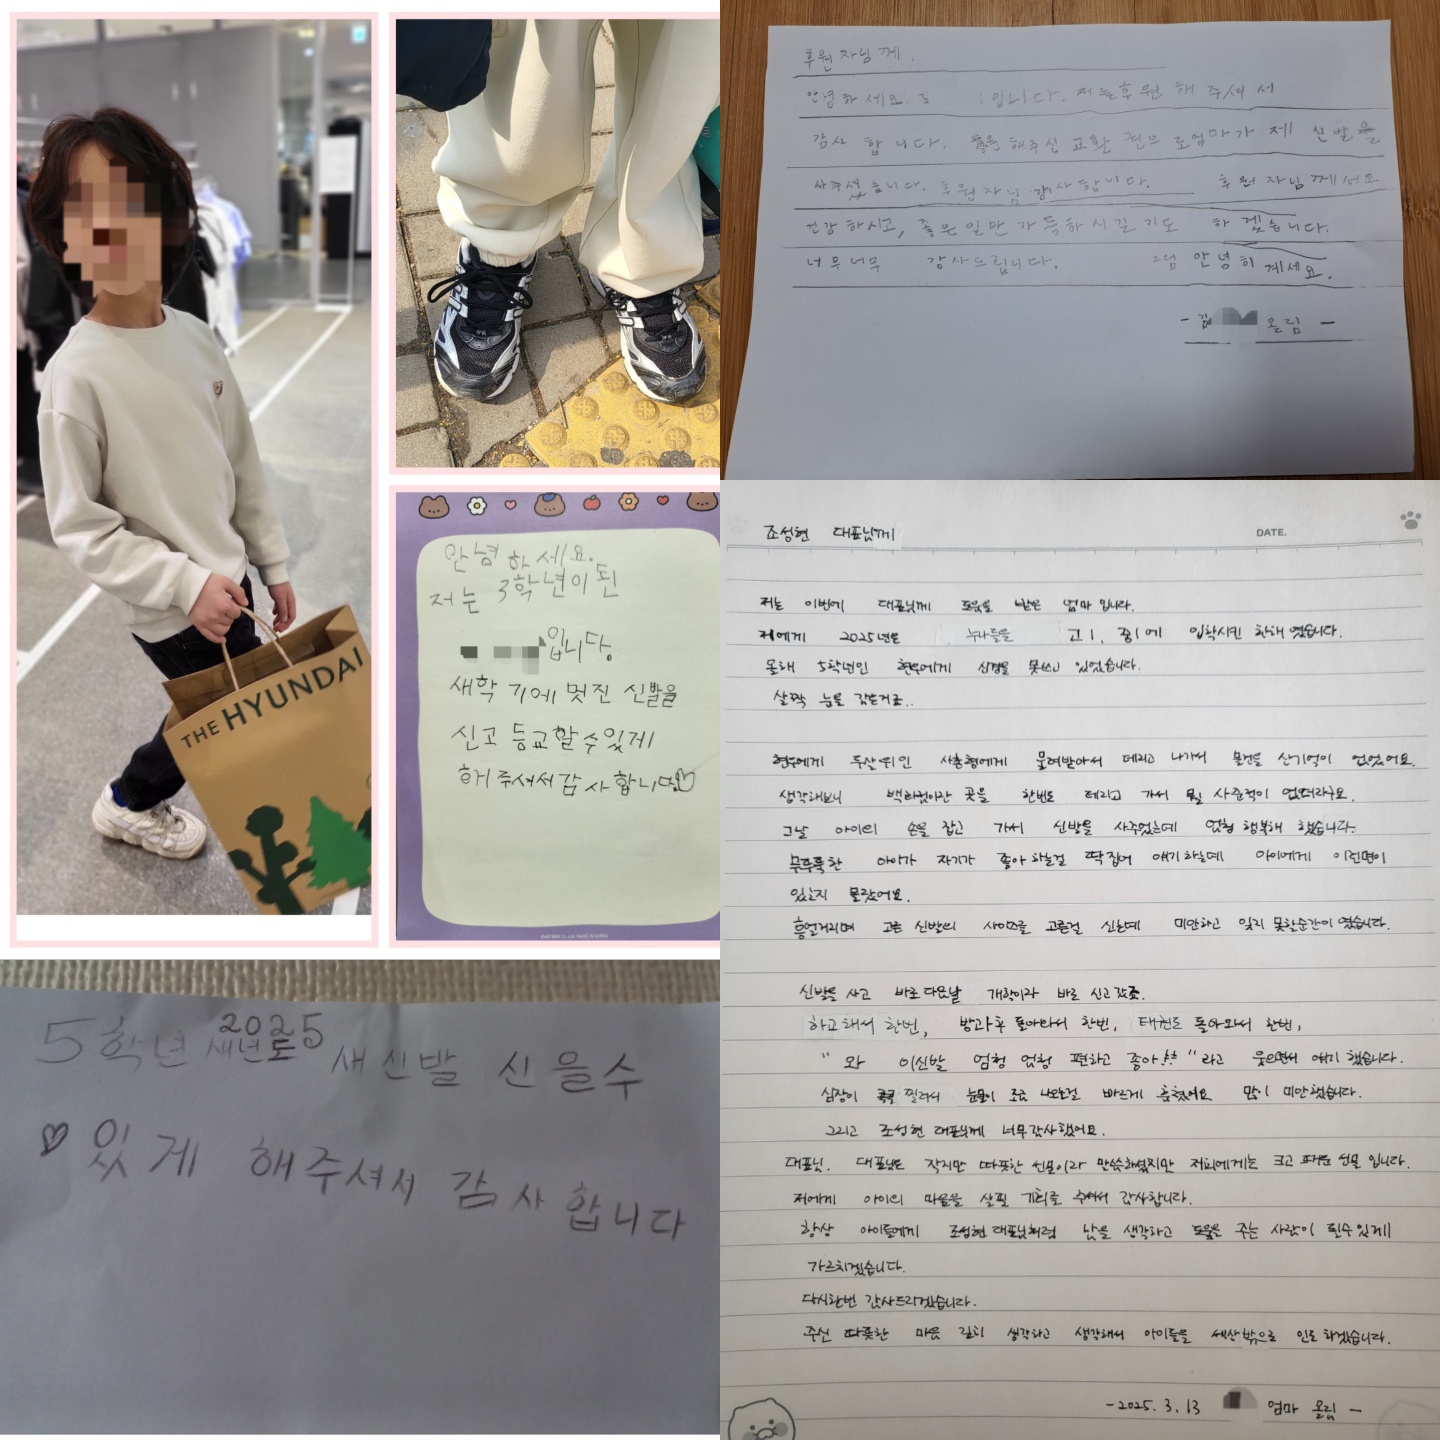 THE HYUNDAI
안녕하세요.
저는 3학년이 된
입니다.
새학기에 멋진 신발을
신고 등교할수있게
해주셔서감사합니다♡
후원자님께.
안녕하세요. 입니다. 저는후원해주셔서
감사합니다. 후원해주신 교환권으로엄마가 제 신발을
사주셨습니다. 후원자님감사합니다. 후원자님께서도
건강하시고, 좋은일만가득하시길기도하겠습니다.
너무너무 감사드립니다. 그럼 안녕히계세요.
-김 올림-
5학년 2025
새년도 새신발 신을수
♡ 있게 해주셔서 감사합니다
조성현 대표님께
DATE.
저는 이번에 대표님께 도움을 받은 엄마입니다.
저에게 2025년은 누나들을 고1, 중1에 입학시킨 한해였습니다.
올해 5학년인 현우에게 신경을 못쓰고 있었습니다.
살짝 눈을 감은거죠..
현우에게 두살위인 사촌형에게 물려받아서 데리고 나가서 물건을 산기억이 없었어요.
생각해보니 백화점이란 곳을 한번도 데리고 가서 뭘 사준적이 없더라구요.
그날 아이의 손을 잡고 가서 신발을 사주었는데 엄청 행복해 했습니다.
무뚝뚝한 아이가 자기가 좋아하는걸 딱집어 얘기하는데 아이에게 이런면이
있는지 몰랐어요.
흥얼거리며 고른 신발의 사이즈를 고른걸 신는데 미안하고 잊지 못할순간이였습니다.
신발을 사고 바로다음날 개학이라 바로 신고갔죠.
하교해서 한번, 방과후 돌아와서 한번, 태권도 돌아와서 한번,
"와 이신발 엄청 엄청 편하고 좋아!!" 라고 웃으면서 얘기했습니다.
심장이 콕콕 찔려서 눈물이 조금 나오는걸 빠르게 훔쳤어요 많이 미안했습니다.
그리고 조성현 대표님께 너무감사했어요.
대표님. 대표님은 작지만 따뜻한 선물이라 말씀하셨지만 저희에게는 크고 뜨거운 선물입니다.
저에게 아이의 마음을 살필 기회를 주셔서 감사합니다.
항상 아이들에게 조성현대표님처럼 남을 생각하고 도움을 주는 사람이 될수있게
가르치겠습니다.
다시한번 감사드리겠습니다.
주신 따뜻한 마음 깊히 생각하고 생각해서 아이들을 세상밖으로 인도하겠습니다.
-2025. 3. 13 엄마 올림-